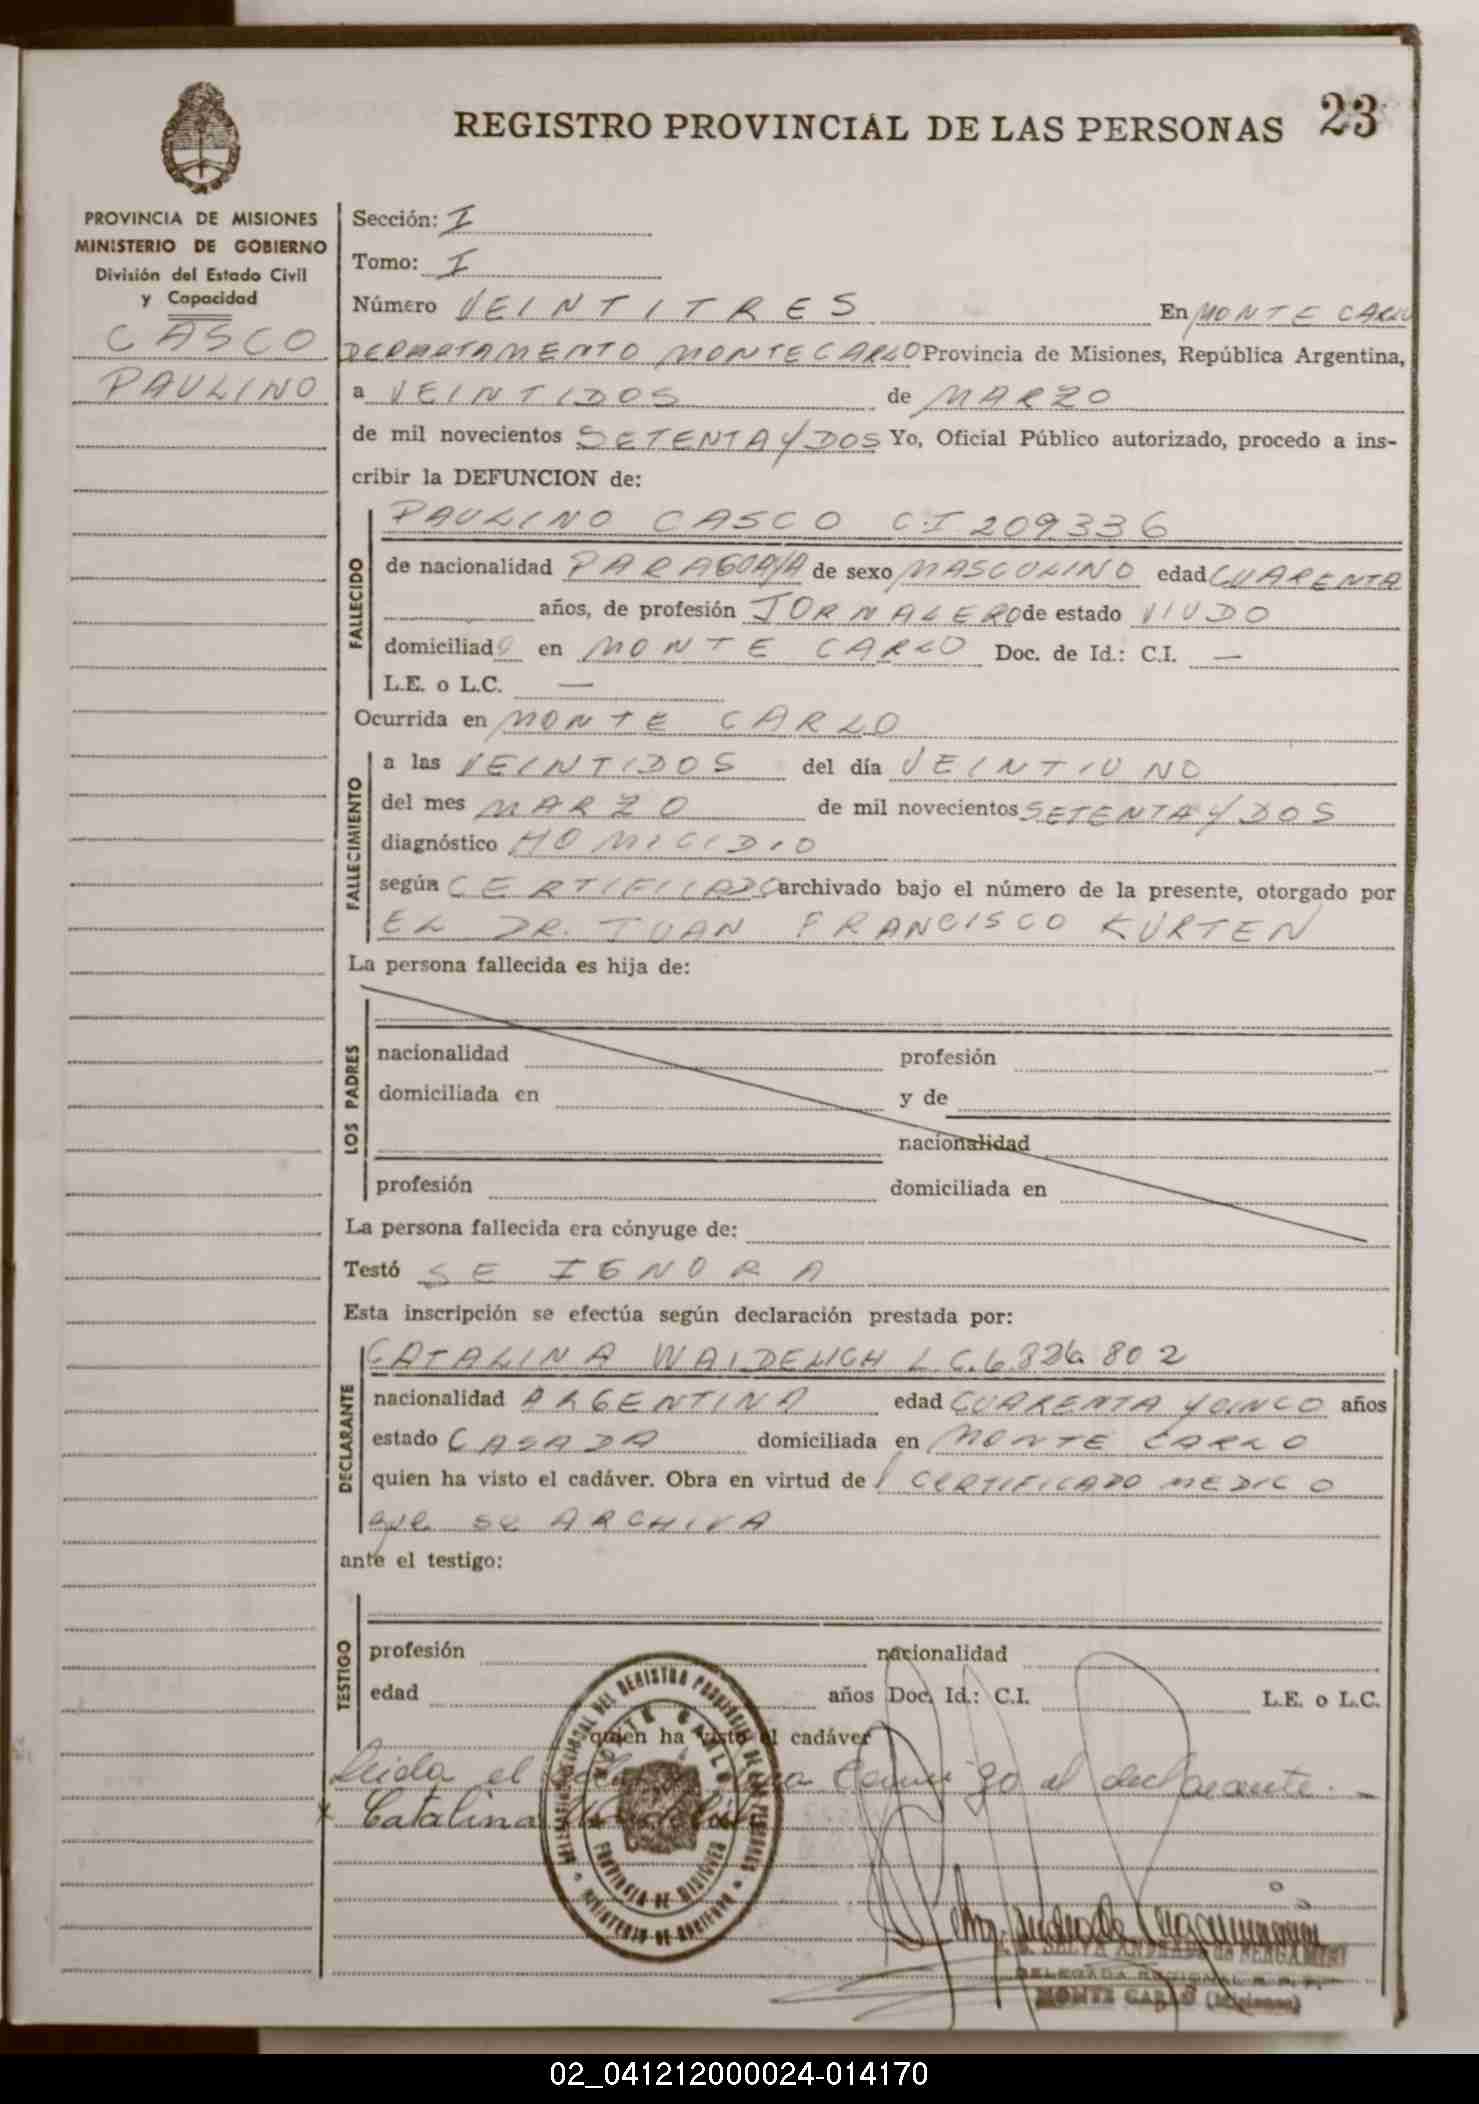 REGISTRO PROVINCIAL DE LAS PERSONAS 23
PROVINCIA DE MISIONES
MINISTERIO DE GOBIERNO
División del Estado Civil
y Capacidad
CASCO
PAULINO
Sección: I
Tomo: I
Número VEINTITRES En MONTE CARLO
DEPARTAMENTO MONTECARLO Provincia de Misiones, República Argentina,
a VEINTIDOS de MARZO
de mil novecientos SETENTA Y DOS Yo, Oficial Público autorizado, procedo a ins-
cribir la DEFUNCION de:
FALLECIDO
PAULINO CASCO C.I 209336
de nacionalidad PARAGUAYA de sexo MASCULINO edad CUARENTA
años, de profesión JORNALERO de estado VIUDO
domiciliado en MONTE CARLO Doc. de Id.: C.I. —
L.E. o L.C. —
Ocurrida en MONTE CARLO
FALLECIMIENTO
a las VEINTIDOS del día VEINTIUNO
del mes MARZO de mil novecientos SETENTA Y DOS
diagnóstico HOMICIDIO
según CERTIFICADO archivado bajo el número de la presente, otorgado por
EL DR. JUAN FRANCISCO KURTEN
La persona fallecida es hija de:
LOS PADRES
nacionalidad profesión
domiciliada en y de
nacionalidad
profesión domiciliada en
La persona fallecida era cónyuge de:
Testó SE IGNORA
Esta inscripción se efectúa según declaración prestada por:
DECLARANTE
CATALINA WAIDELICH L.C. 6.826.802
nacionalidad ARGENTINA edad CUARENTA Y CINCO años
estado CASADA domiciliada en MONTE CARLO
quien ha visto el cadáver. Obra en virtud de CERTIFICADO MEDICO
que se ARCHIVA
ante el testigo:
TESTIGO
profesión nacionalidad
edad años Doc. Id.: C.I. L.E. o L.C.
quien ha visto el cadáver
Leida el acta firma conmigo el declarante. —
x Catalina
MONTE CARLO
PROVINCIA DE MISIONES
MINISTERIO DE GOBIERNO
SELVA ANDRADE de BERGAMINI
DELEGADA REGIONAL R. P. P.
MONTE CARLO (Misiones)
02_041212000024-014170